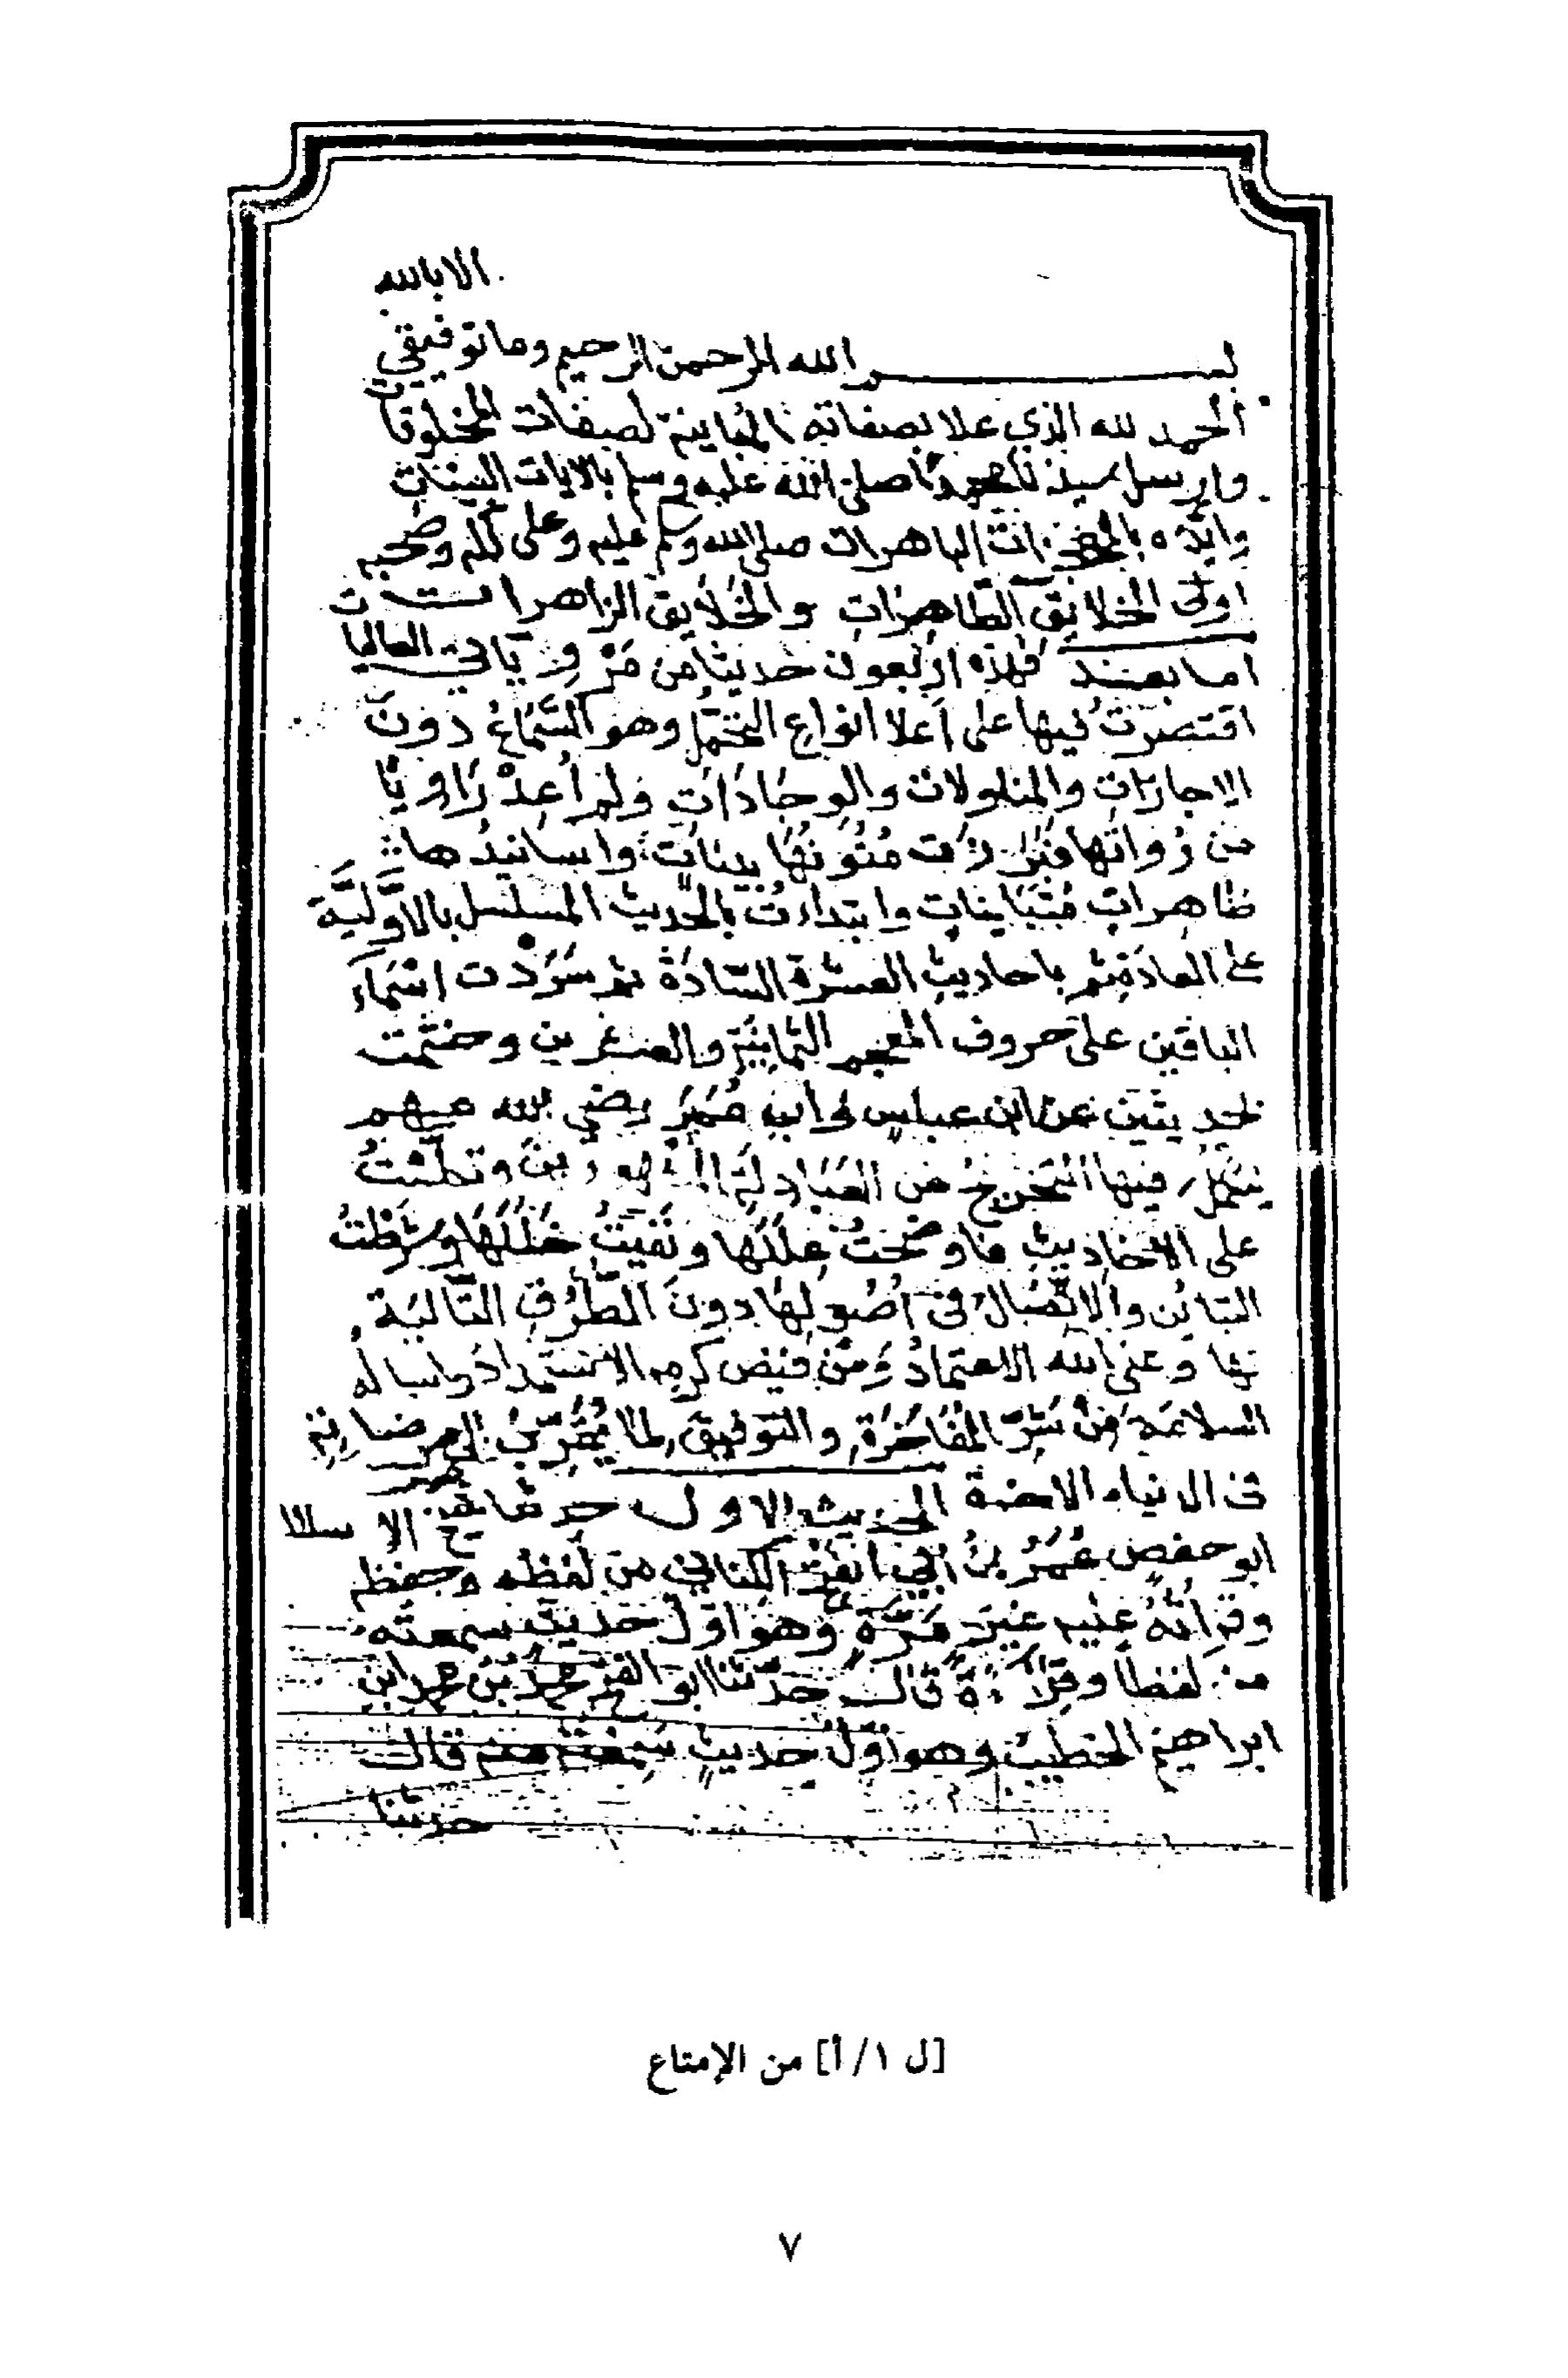 الا بالله
بسم الله الرحمن الرحيم وما توفيقي
الحمد لله الذي علا بصفاته المباينة لصفات المخلوقات
وارسل سيدنا محمدا صلى الله عليه وسلم بالايات البينات
وايده بالمعجزات الباهرات صلى الله وسلم عليه وعلى آله وصحبه
اولى الخلائق الطاهرات والخلايق الزاهرات
اما بعد فهذه اربعون حديثا من مروياتي العاليات
اقتصرت فيها على اعلا انواع التحمل وهو السماع دون
الاجازات والمناولات والوجادات ولم اعد راويا
من رواتها فبرزت متونها بينات واسانيدها
ظاهرات متباينات وابتداءت بالحديث المسلسل بالاولية
على العادة ثم باحاديث العشرة السادة ثم سردت اسماء
الباقين على حروف المعجم الثمانية والعشرين وختمت
بحديثين عن ابن عباس وابن عمر رضي الله عنهم
ليكمل فيها التخريج عن العبادلة المشهورين وتكلمت
على الاحاديث فاوضحت عللها ونفيت خللها وشرطت
التباين والاتصال في اصولها دون الطرق التالية
لها وعلى الله الاعتماد ومن فيض كرمه الاستمداد واساله
السلامة من شر المفاخرة والتوفيق لما يقرب الى مرضاته
في الدنيا والاخرة الحديث الاول حدثنا شيخ الاسلام
ابو حفص عمر بن ابي الفتح الكناني من لفظه وحفظه
وقراته عليه غير مرة وهو اول حديث سمعته
منه لفظا وقراءة قال حدثنا ابو الفتح محمد بن محمد ابن
ابراهيم الخطيب وهو اول حديث سمعته منه قال
حدثنا
[ل ١/ أ] من الإمتاع
٧